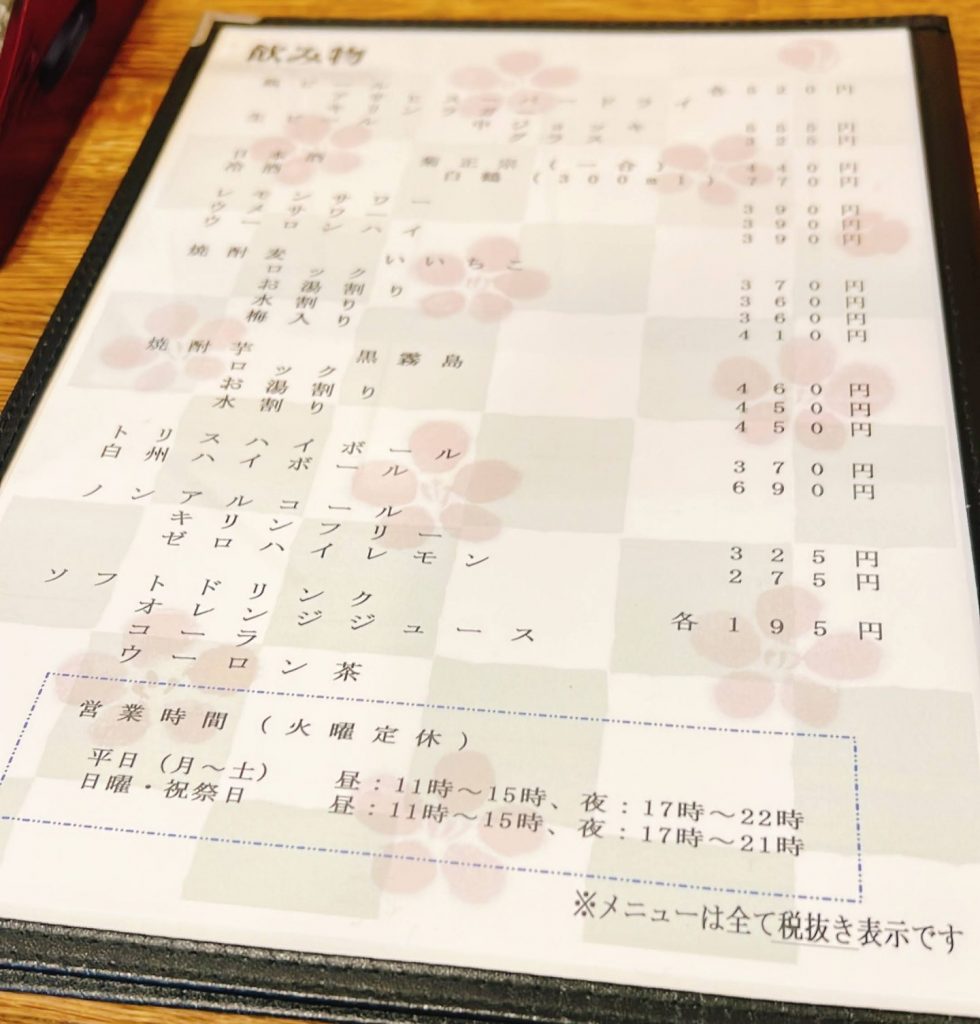 飲み物
瓶ビール 各520円
アサヒスーパードライ
生ビール 中ジョッキ 555円
グラス 325円
日本酒 菊正宗(一合) 440円
冷酒 白鶴(300ml) 770円
レモンサワー 390円
ウメサワー 390円
ウーロンハイ 390円
焼酎麦 いいちこ
ロック 370円
お湯割り 360円
水割り 360円
梅入り 410円
焼酎芋 黒霧島
ロック 460円
お湯割り 450円
水割り 450円
トリスハイボール 370円
白州ハイボール 690円
ノンアルコール
キリンフリー 325円
ゼロハイレモン 275円
ソフトドリンク 各195円
オレンジジュース
コーラ
ウーロン茶
営業時間(火曜定休)
平日(月～土) 昼:11時～15時、夜:17時～22時
日曜・祝祭日 昼:11時～15時、夜:17時～21時
※メニューは全て税抜き表示です